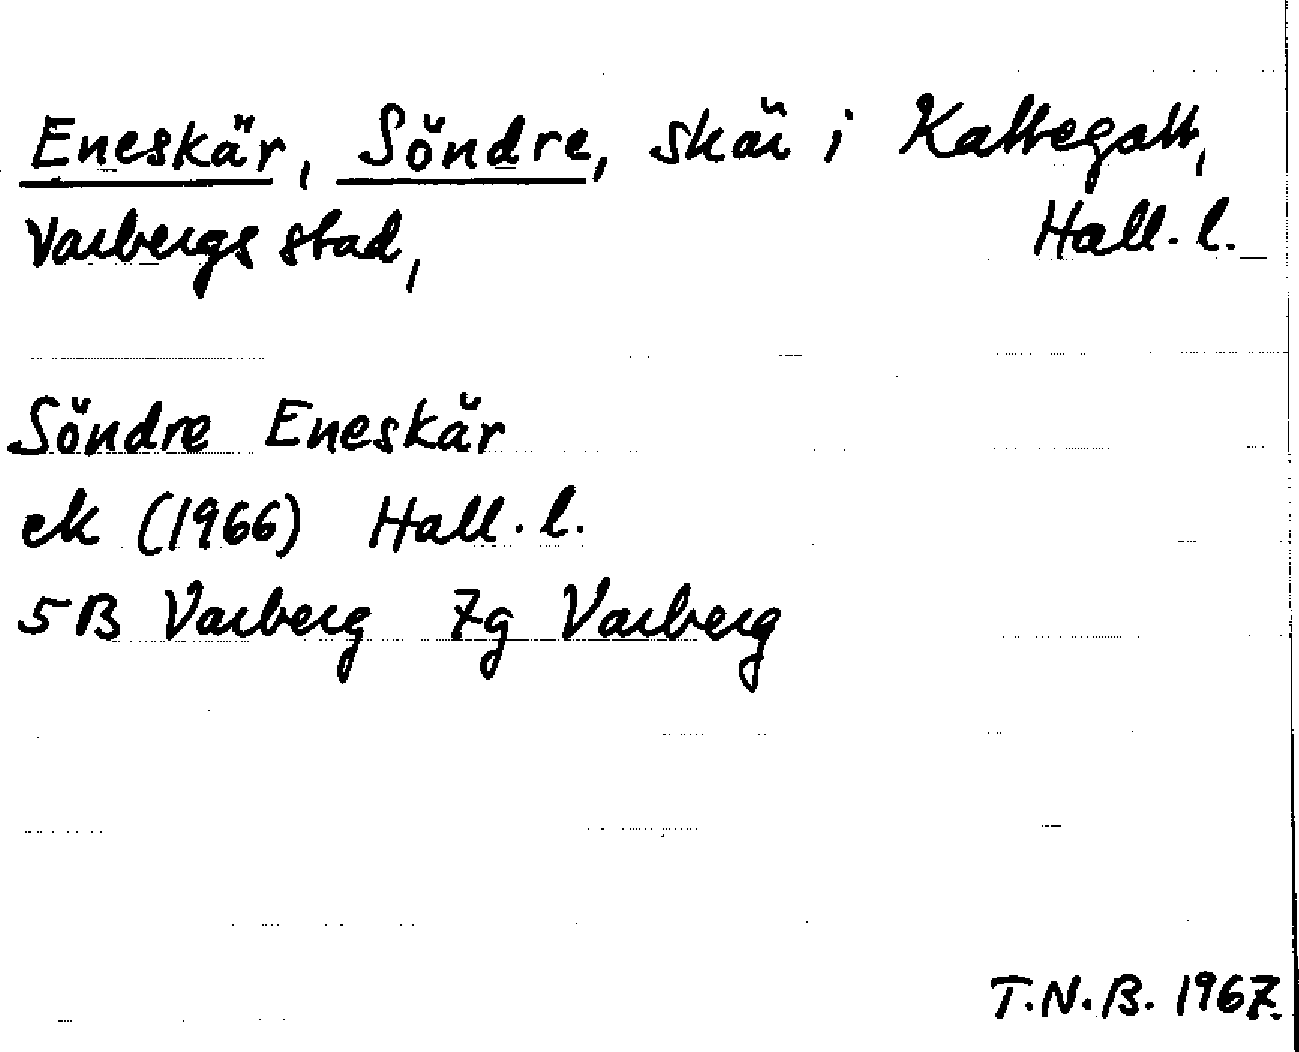 Eneskär, Söndre, skär i Kattegatt,
Varbergs stad, Hall. l.
Söndre Eneskär
ek (1966) Hall. l.
5B Varberg 7g Varberg
T.N.B. 1967